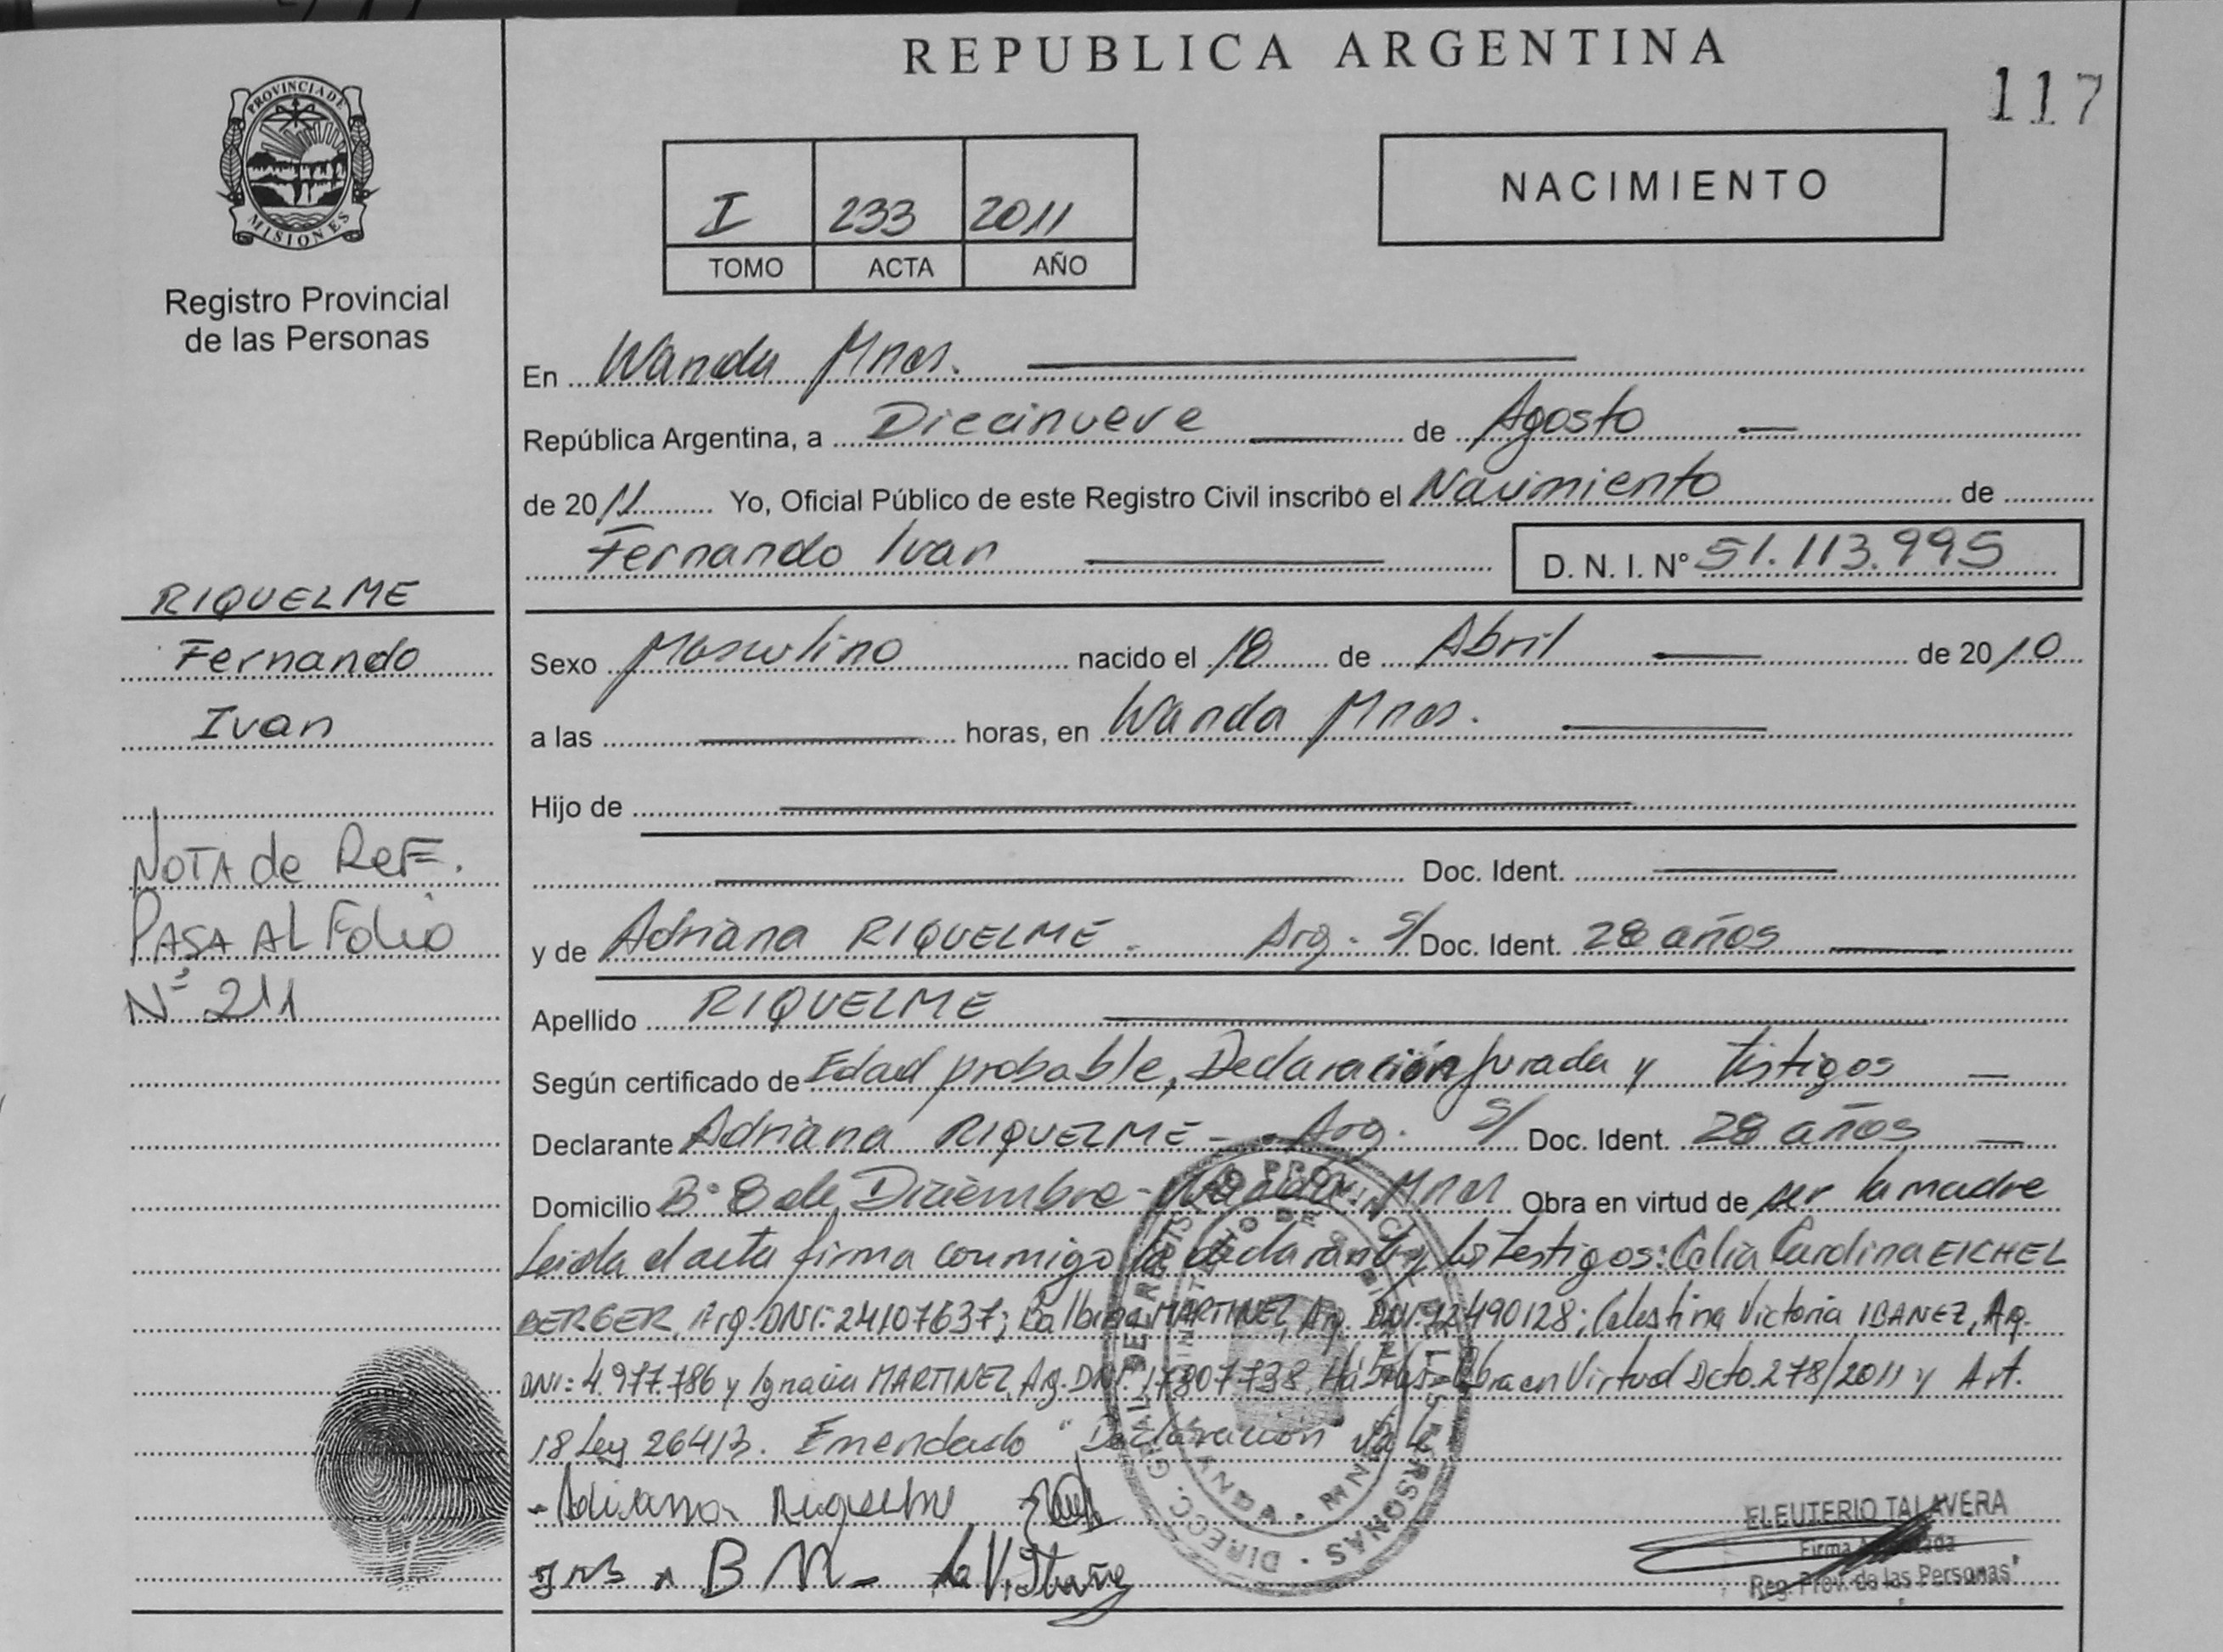 REPUBLICA ARGENTINA
117
PROVINCIA DE
MISIONES
Registro Provincial
de las Personas
I 233 2011
TOMO ACTA AÑO
NACIMIENTO
En Wanda Mnes.
República Argentina, a Diecinueve de Agosto
de 2011 Yo, Oficial Público de este Registro Civil inscribo el Nacimiento de
Fernando Ivan D. N. I. N° 51.113.995
RIQUELME
Fernando
Ivan
NOTA de REF.
PASA AL Folio
N° 211
Sexo Masculino nacido el 18 de Abril de 2010
a las horas, en Wanda Mnes.
Hijo de
Doc. Ident.
y de Adriana RIQUELME - Arg. S/ Doc. Ident. 28 años
Apellido RIQUELME
Según certificado de Edad probable, Declaración Jurada y Testigos
Declarante Adriana RIQUELME - Arg. S/ Doc. Ident. 28 años
Domicilio B° 8 de Diciembre - Wanda Mnes Obra en virtud de ser la madre
Leida el acta firma conmigo la declarante y los testigos: Celia Carolina EICHEL
BERGER, Arg. DNI: 24107637; Balbina MARTINEZ, Arg. DNI: 12490128; Celestina Victoria IBAÑEZ, Arg.
DNI: 4.977.786 y Ignacia MARTINEZ, Arg. DNI: 17807738, Hábiles - Obra en Virtud Dcto. 278/2011 y Art.
18 Ley 26413. Emendado "Declaración" Vale
- Adriana Riquelme
B M - V. Ibañez
ELEUTERIO TALAVERA
Firma
Reg. Prov. de las Personas